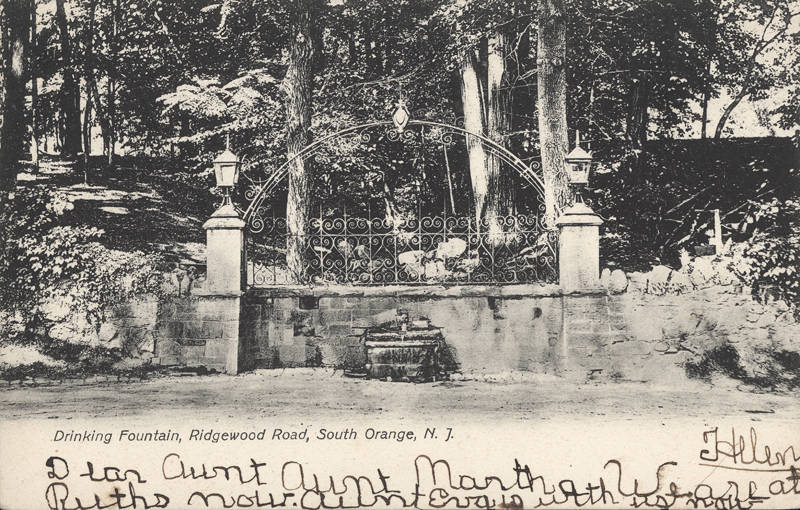 Drinking Fountain, Ridgewood Road, South Orange, N. J.
Helen
Dear Aunt Aunt Martha We are at
Ruths now. Aunt Eva is with us now